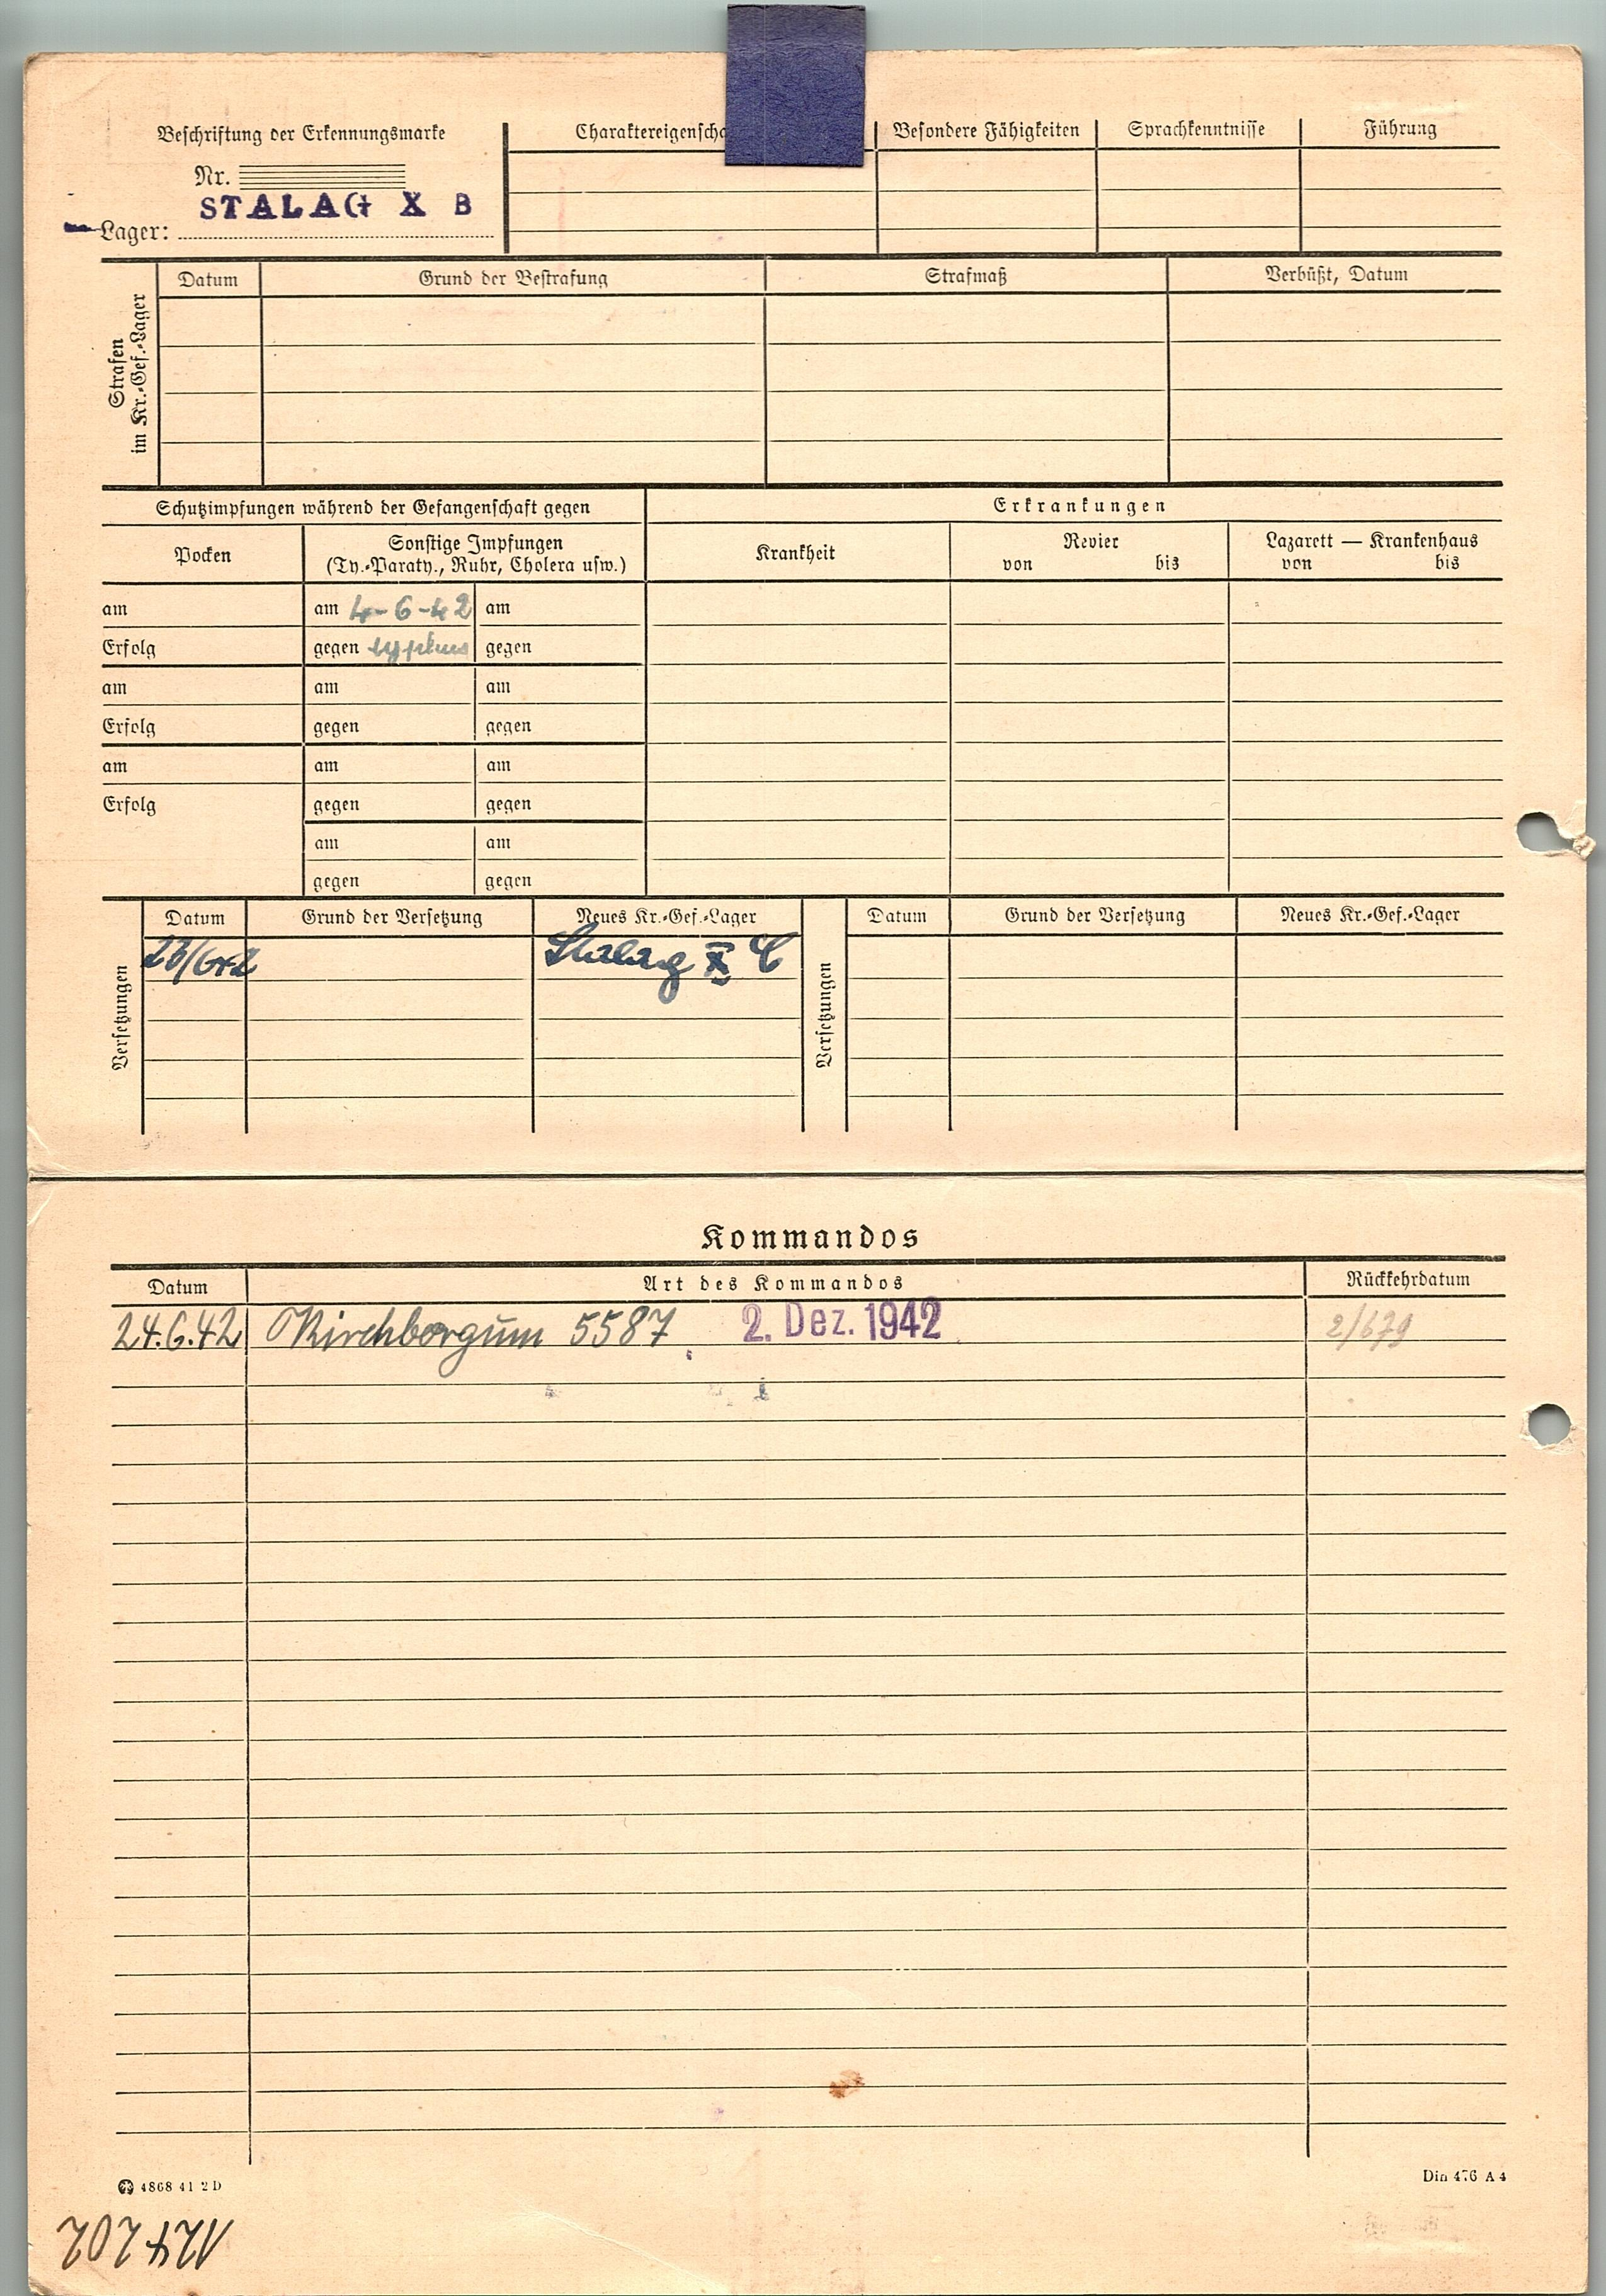 Beschriftung der Erkennungsmarke
Nr.
STALAG X B
Lager:
Charaktereigenscha
Besondere Fähigkeiten
Sprachkenntnisse
Führung
Strafen
im Kr.-Gef.-Lager
Datum
Grund der Bestrafung
Strafmaß
Verbüßt, Datum
Schutzimpfungen während der Gefangenschaft gegen
Erkrankungen
Pocken
Sonstige Impfungen
(Ty.-Paraty., Ruhr, Cholera usw.)
Krankheit
Revier
von bis
Lazarett — Krankenhaus
von bis
am am 4-6-42 am
Erfolg gegen typhus gegen
am am am
Erfolg gegen gegen
am am am
Erfolg gegen gegen
am am
gegen gegen
Versetzungen
Datum Grund der Versetzung Neues Kr.-Gef.-Lager
Stalag X C
Versetzungen
Datum Grund der Versetzung Neues Kr.-Gef.-Lager
Kommandos
Datum Art des Kommandos Rückkehrdatum
24.6.42 Kirchborgum 5587 2. Dez. 1942 2/679
4868 41 2 D
Din 476 A 4
124202